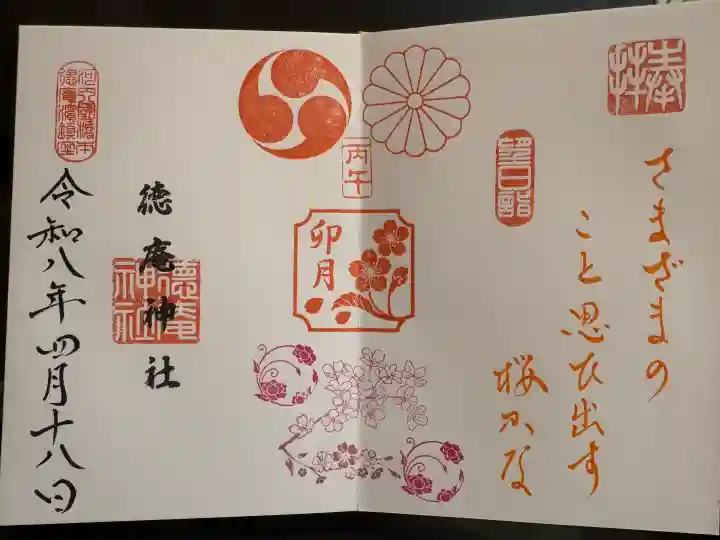 奉拝
さまざまの
こと思ひ出す
桜かな
朔日詣
丙午
卯月
徳庵神社
徳庵神社
令和八年四月十八日